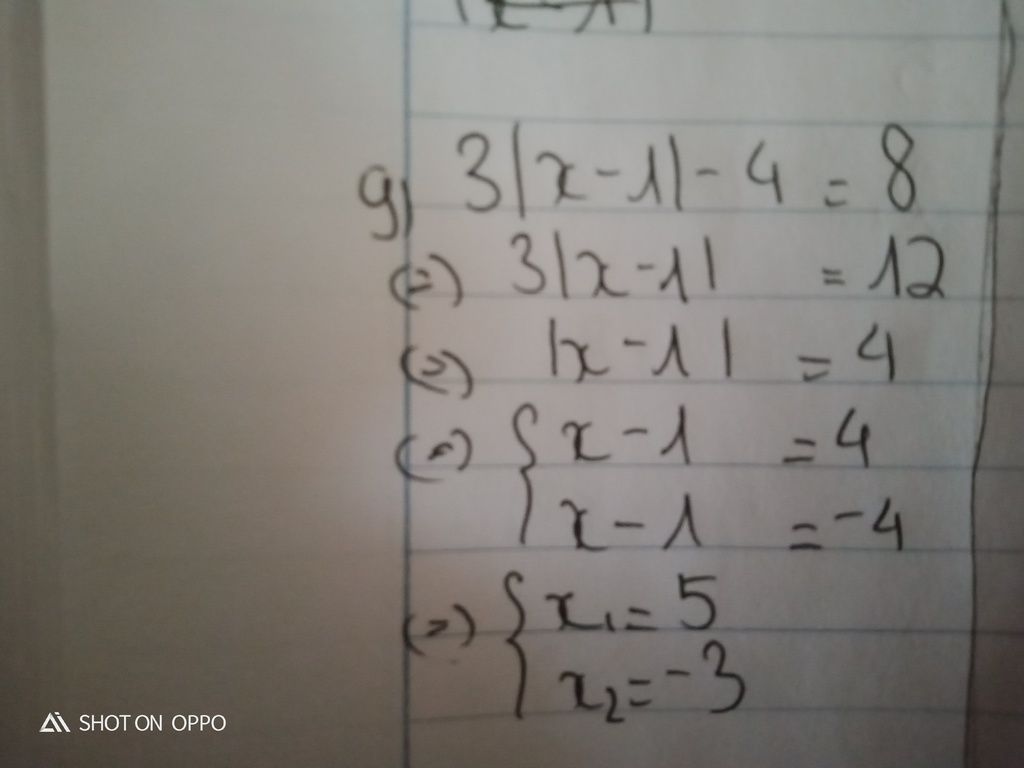 |x-1|
g) 3|x-1|-4 = 8
(=) 3|x-1| = 12
(=) |x-1| = 4
(=) { x-1 = 4
x-1 = -4
(=) { x₁ = 5
x₂ = -3
SHOT ON OPPO